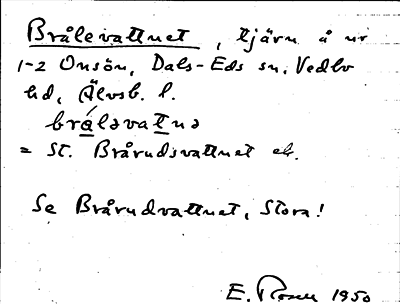 Brålevattnet, tjärn å nr
1-2 Onsön, Dals-Eds sn. Vedbo
hd, Älvsb. l.
brǻləvatnə
= St. Brårudsvattnet ek.
Se Brårudvattnet, Stora!
E. Rosell 1950